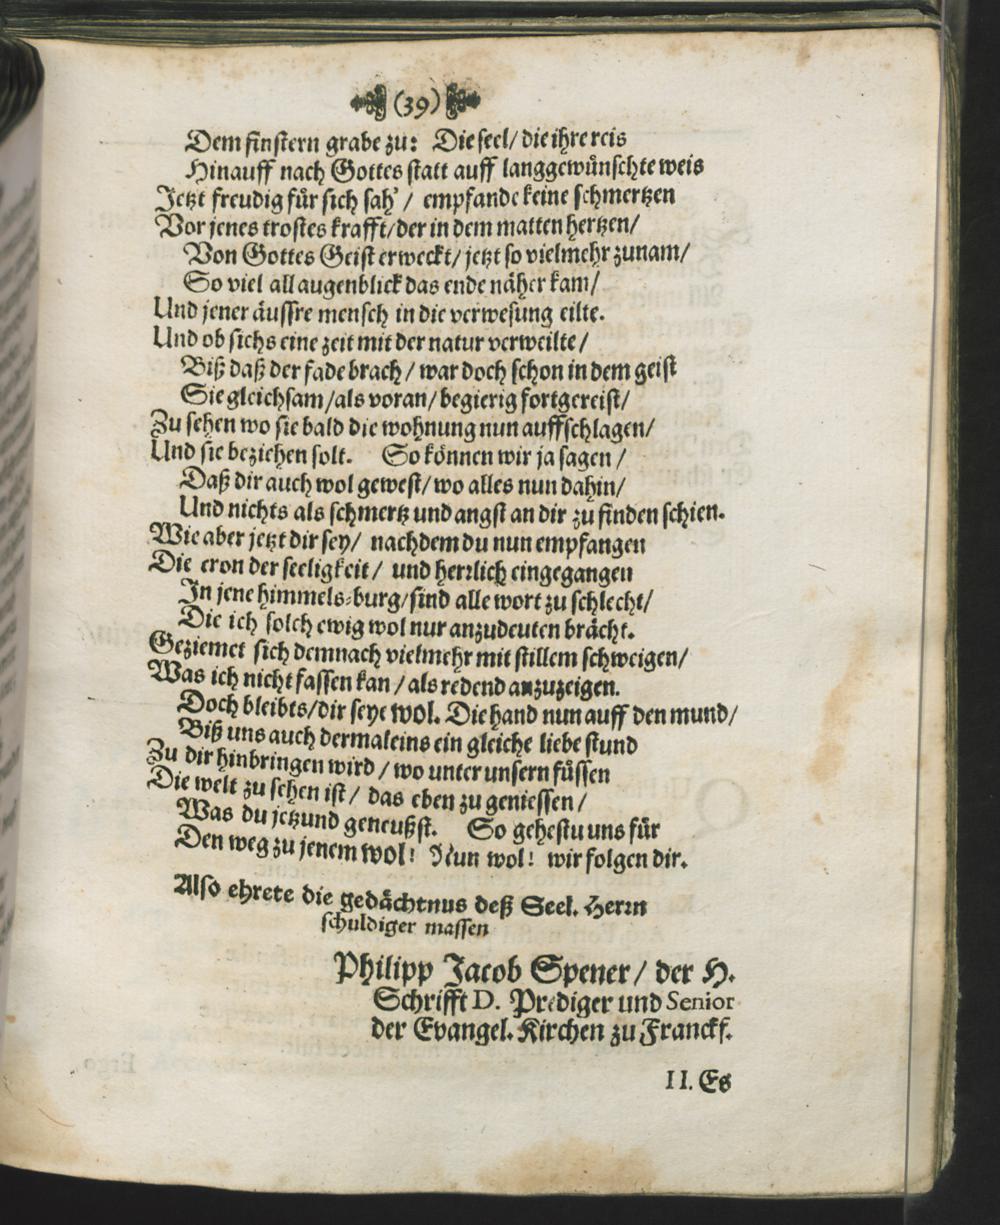 (39)
Dem finstern grabe zu: Die seel/ die ihre reis
Hinauff nach Gottes statt auff langgewünschte weis
Jetzt freudig für sich sah' / empfande keine schmertzen
Vor jenes trostes krafft/ der in dem matten hertzen/
Von Gottes Geist erweckt/ jetzt so vielmehr zunam/
So viel all augenblick das ende näher kam/
Und jener äussre mensch in die verwesung eilte.
Und ob sichs eine zeit mit der natur verweilte /
Biß daß der fade brach / war doch schon in dem geist
Sie gleichsam/als voran/ begierig fortgereist/
Zu sehen wo sie bald die wohnung nun auffschlagen/
Und sie beziehen solt. So können wir ja sagen /
Daß dir auch wol gewest/ wo alles nun dahin/
Und nichts als schmertz und angst an dir zu finden schien.
Wie aber jetzt dir sey/ nachdem du nun empfangen
Die cron der seeligkeit / und herrlich eingegangen
In jene himmels-burg/sind alle wort zu schlecht/
Die ich solch ewig wol nur anzudeuten brächt.
Geziemet sich demnach vielmehr mit stillem schweigen/
Was ich nicht fassen kan / als redend anzuzeigen.
Doch bleibts/dir seye wol. Die hand nun auff den mund/
Biß uns auch dermaleins ein gleiche liebe stund
Zu dir hinbringen wird / wo unter unsern füssen
Die welt zu sehen ist / das eben zu geniessen /
Was du jetzund geneußst. So gehestu uns für
Den weg zu jenem wol! Nun wol! wir folgen dir.
Also ehrete die gedächtnus deß Seel. Herrn
schuldiger massen
Philipp Jacob Spener / der H.
Schrifft D. Prediger und Senior
der Evangel. Kirchen zu Franckf.
II. Es